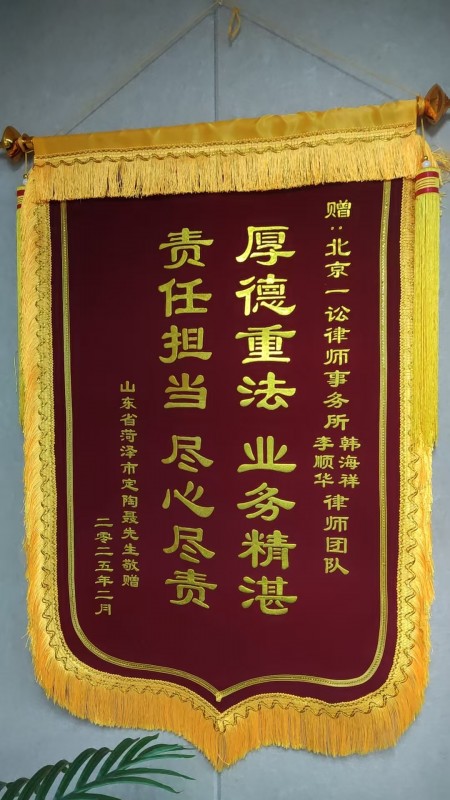 赠：北京一讼律师事务所 韩海祥 李顺华 律师团队
厚德重法 业务精湛
责任担当 尽心尽责
山东省菏泽市定陶聂先生敬赠
二零二五年二月